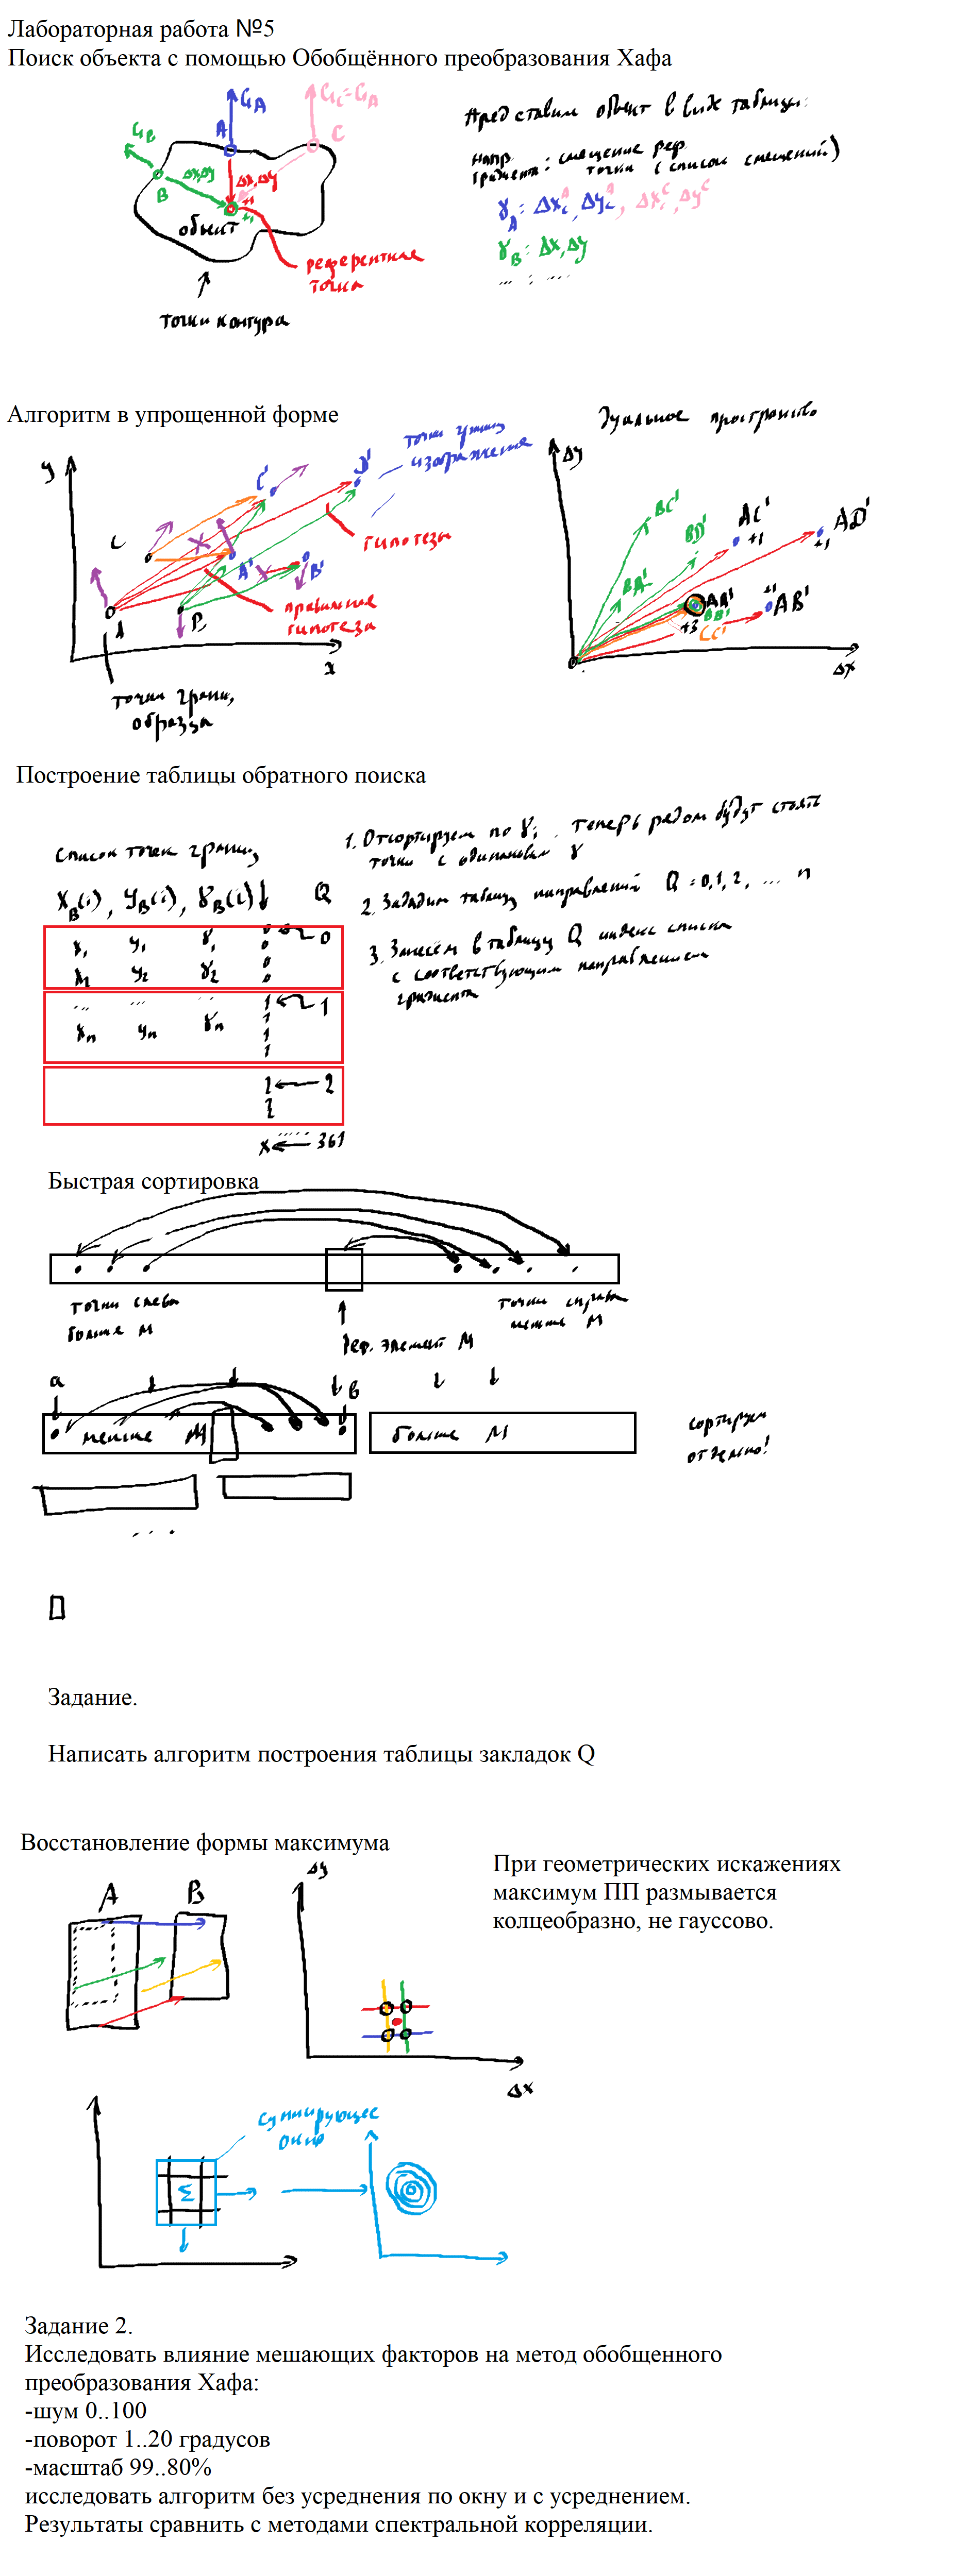 Лабораторная работа №5
Поиск объекта с помощью Обобщённого преобразования Хафа
G_A
G_C=G_A
G_B
A
C
Δx,Δy
Δx,Δy
B
+1
+1
объект
референтная
точка
точки контура
Представим объект в виде таблицы:
напр
градиента: смещение реф
точки (список смещений)
γ_A = Δx_C^A, Δy_C^A, Δx_C^C, Δy^C
γ_B = Δx, Δy
... : ....
Алгоритм в упрощенной форме
Дуальное пространство
y
C'
D'
точки границ
изображения
C
A'
B'
гипотезы
A
правильная
гипотеза
x
точки границ
образца
Δy
BC'
BD'
AC'
+1
AD'
+1
BA'
AA'
BB'
CC'
+3
+1
AB'
Δx
Построение таблицы обратного поиска
Список точек границ
x_B(i), y_B(i), γ_B(i) Q
x_1 y_1 γ_1 0 0
x_2 y_2 γ_2 0
0
... ... ... 1 1
x_n y_n γ_n 1
1
1
2 2
2
x ..... 361
1. Отсортируем по γ_i. теперь рядом будут стоять
точки с одинаковым γ
2. Зададим таблицу направлений Q = 0,1,2, ... n
3. Занесём в таблицу Q индекс списка
с соответствующим направлением
градиента
Быстрая сортировка
точки слева
больше M
Реф. элемент M
точки справа
меньше M
a
b
меньше M
больше M
сортируем
отдельно!
....
Задание.
Написать алгоритм построения таблицы закладок Q
Восстановление формы максимума
При геометрических искажениях
максимум ПП размывается
колцеобразно, не гауссово.
A
B
Δy
Δx
Суммирующее
окно
Σ
Задание 2.
Исследовать влияние мешающих факторов на метод обобщенного
преобразования Хафа:
-шум 0..100
-поворот 1..20 градусов
-масштаб 99..80%
исследовать алгоритм без усреднения по окну и с усреднением.
Результаты сравнить с методами спектральной корреляции.